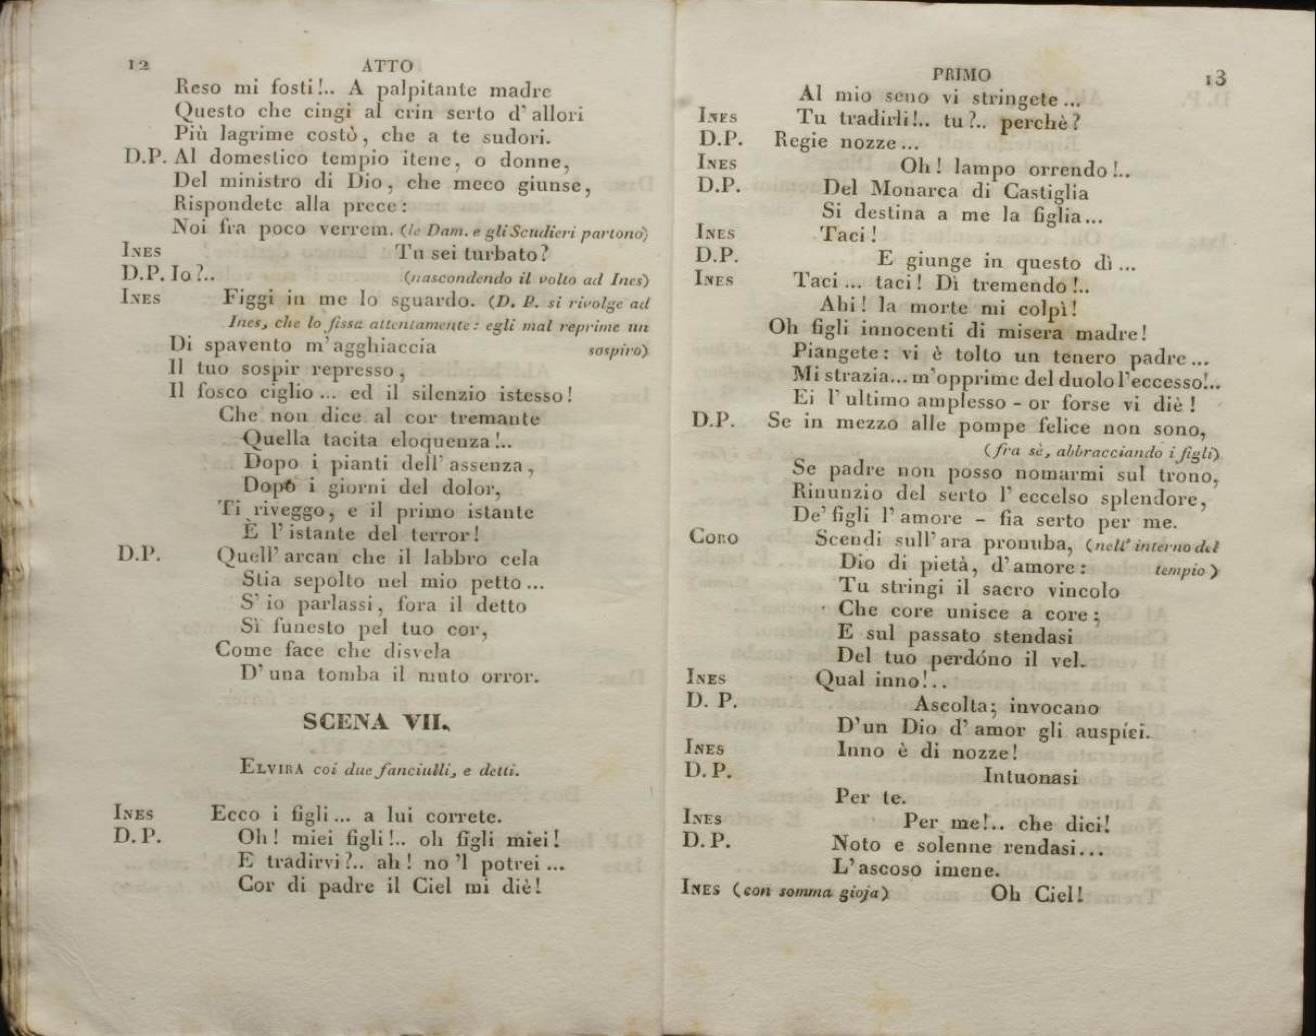 12 ATTO
Reso mi fosti!.. A palpitante madre
Questo che cingi al crin serto d'allori
Più lagrime costò, che a te sudori.
D.P. Al domestico tempio itene, o donne,
Del ministro di Dio, che meco giunse,
Rispondete alla prece:
Noi fra poco verrem. (le Dam. e gli Scudieri partono)
INES Tu sei turbato?
D.P. Io?.. (nascondendo il volto ad Ines)
INES Figgi in me lo sguardo. (D. P. si rivolge ad
Ines, che lo fissa attentamente: egli mal reprime un
Di spavento m'agghiaccia sospiro)
Il tuo sospir represso,
Il fosco ciglio... ed il silenzio istesso!
Che non dice al cor tremante
Quella tacita eloquenza!..
Dopo i pianti dell'assenza,
Dopo i giorni del dolor,
Ti riveggo, e il primo istante
È l'istante del terror!
D.P. Quell'arcan che il labbro cela
Stia sepolto nel mio petto...
S'io parlassi, fora il detto
Sì funesto pel tuo cor,
Come face che disvela
D'una tomba il muto orror.
SCENA VII.
ELVIRA coi due fanciulli, e detti.
INES Ecco i figli... a lui correte.
D.P. Oh! miei figli!.. oh figli miei!
E tradirvi?.. ah! no 'l potrei...
Cor di padre il Ciel mi diè!
PRIMO 13
Al mio seno vi stringete...
INES Tu tradirli!.. tu?.. perchè?
D.P. Regie nozze...
INES Oh! lampo orrendo!..
D.P. Del Monarca di Castiglia
Si destina a me la figlia...
INES Taci!
D.P. E giunge in questo dì...
INES Taci... taci! Dì tremendo!..
Ahi! la morte mi colpì!
Oh figli innocenti di misera madre!
Piangete: vi è tolto un tenero padre...
Mi strazia... m'opprime del duolo l'eccesso!..
Ei l'ultimo amplesso - or forse vi diè!
D.P. Se in mezzo alle pompe felice non sono,
(fra sè, abbracciando i figli)
Se padre non posso nomarmi sul trono,
Rinunzio del serto l'eccelso splendore,
De' figli l'amore - fia serto per me.
CORO Scendi sull'ara pronuba, (nell'interno del
Dio di pietà, d'amore: tempio)
Tu stringi il sacro vincolo
Che core unisce a core;
E sul passato stendasi
Del tuo perdóno il vel.
INES Qual inno!..
D. P. Ascolta; invocano
D'un Dio d'amor gli auspíci.
INES Inno è di nozze!
D.P. Intuonasi
Per te.
INES Per me!.. che dici!
D.P. Noto e solenne rendasi...
L'ascoso imene.
INES (con somma gioja) Oh Ciel!